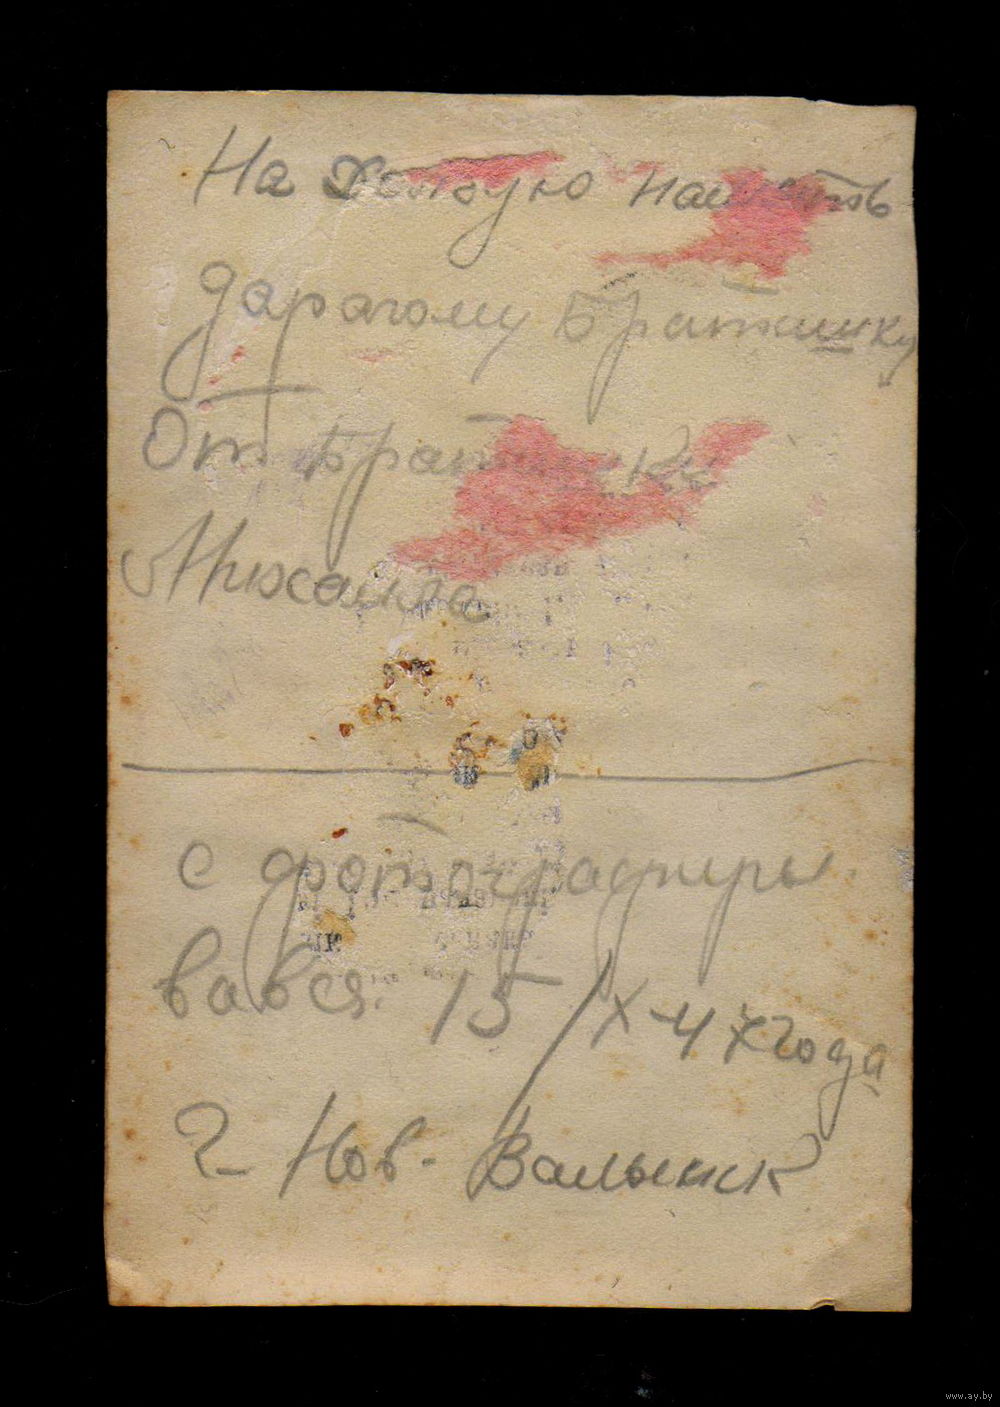 На Долгую память
дарагому Братишку
От Братишки
Михаила
с фотографиры
вався. 15/IX-47года
г- Нов. Валынск
www.ay.by